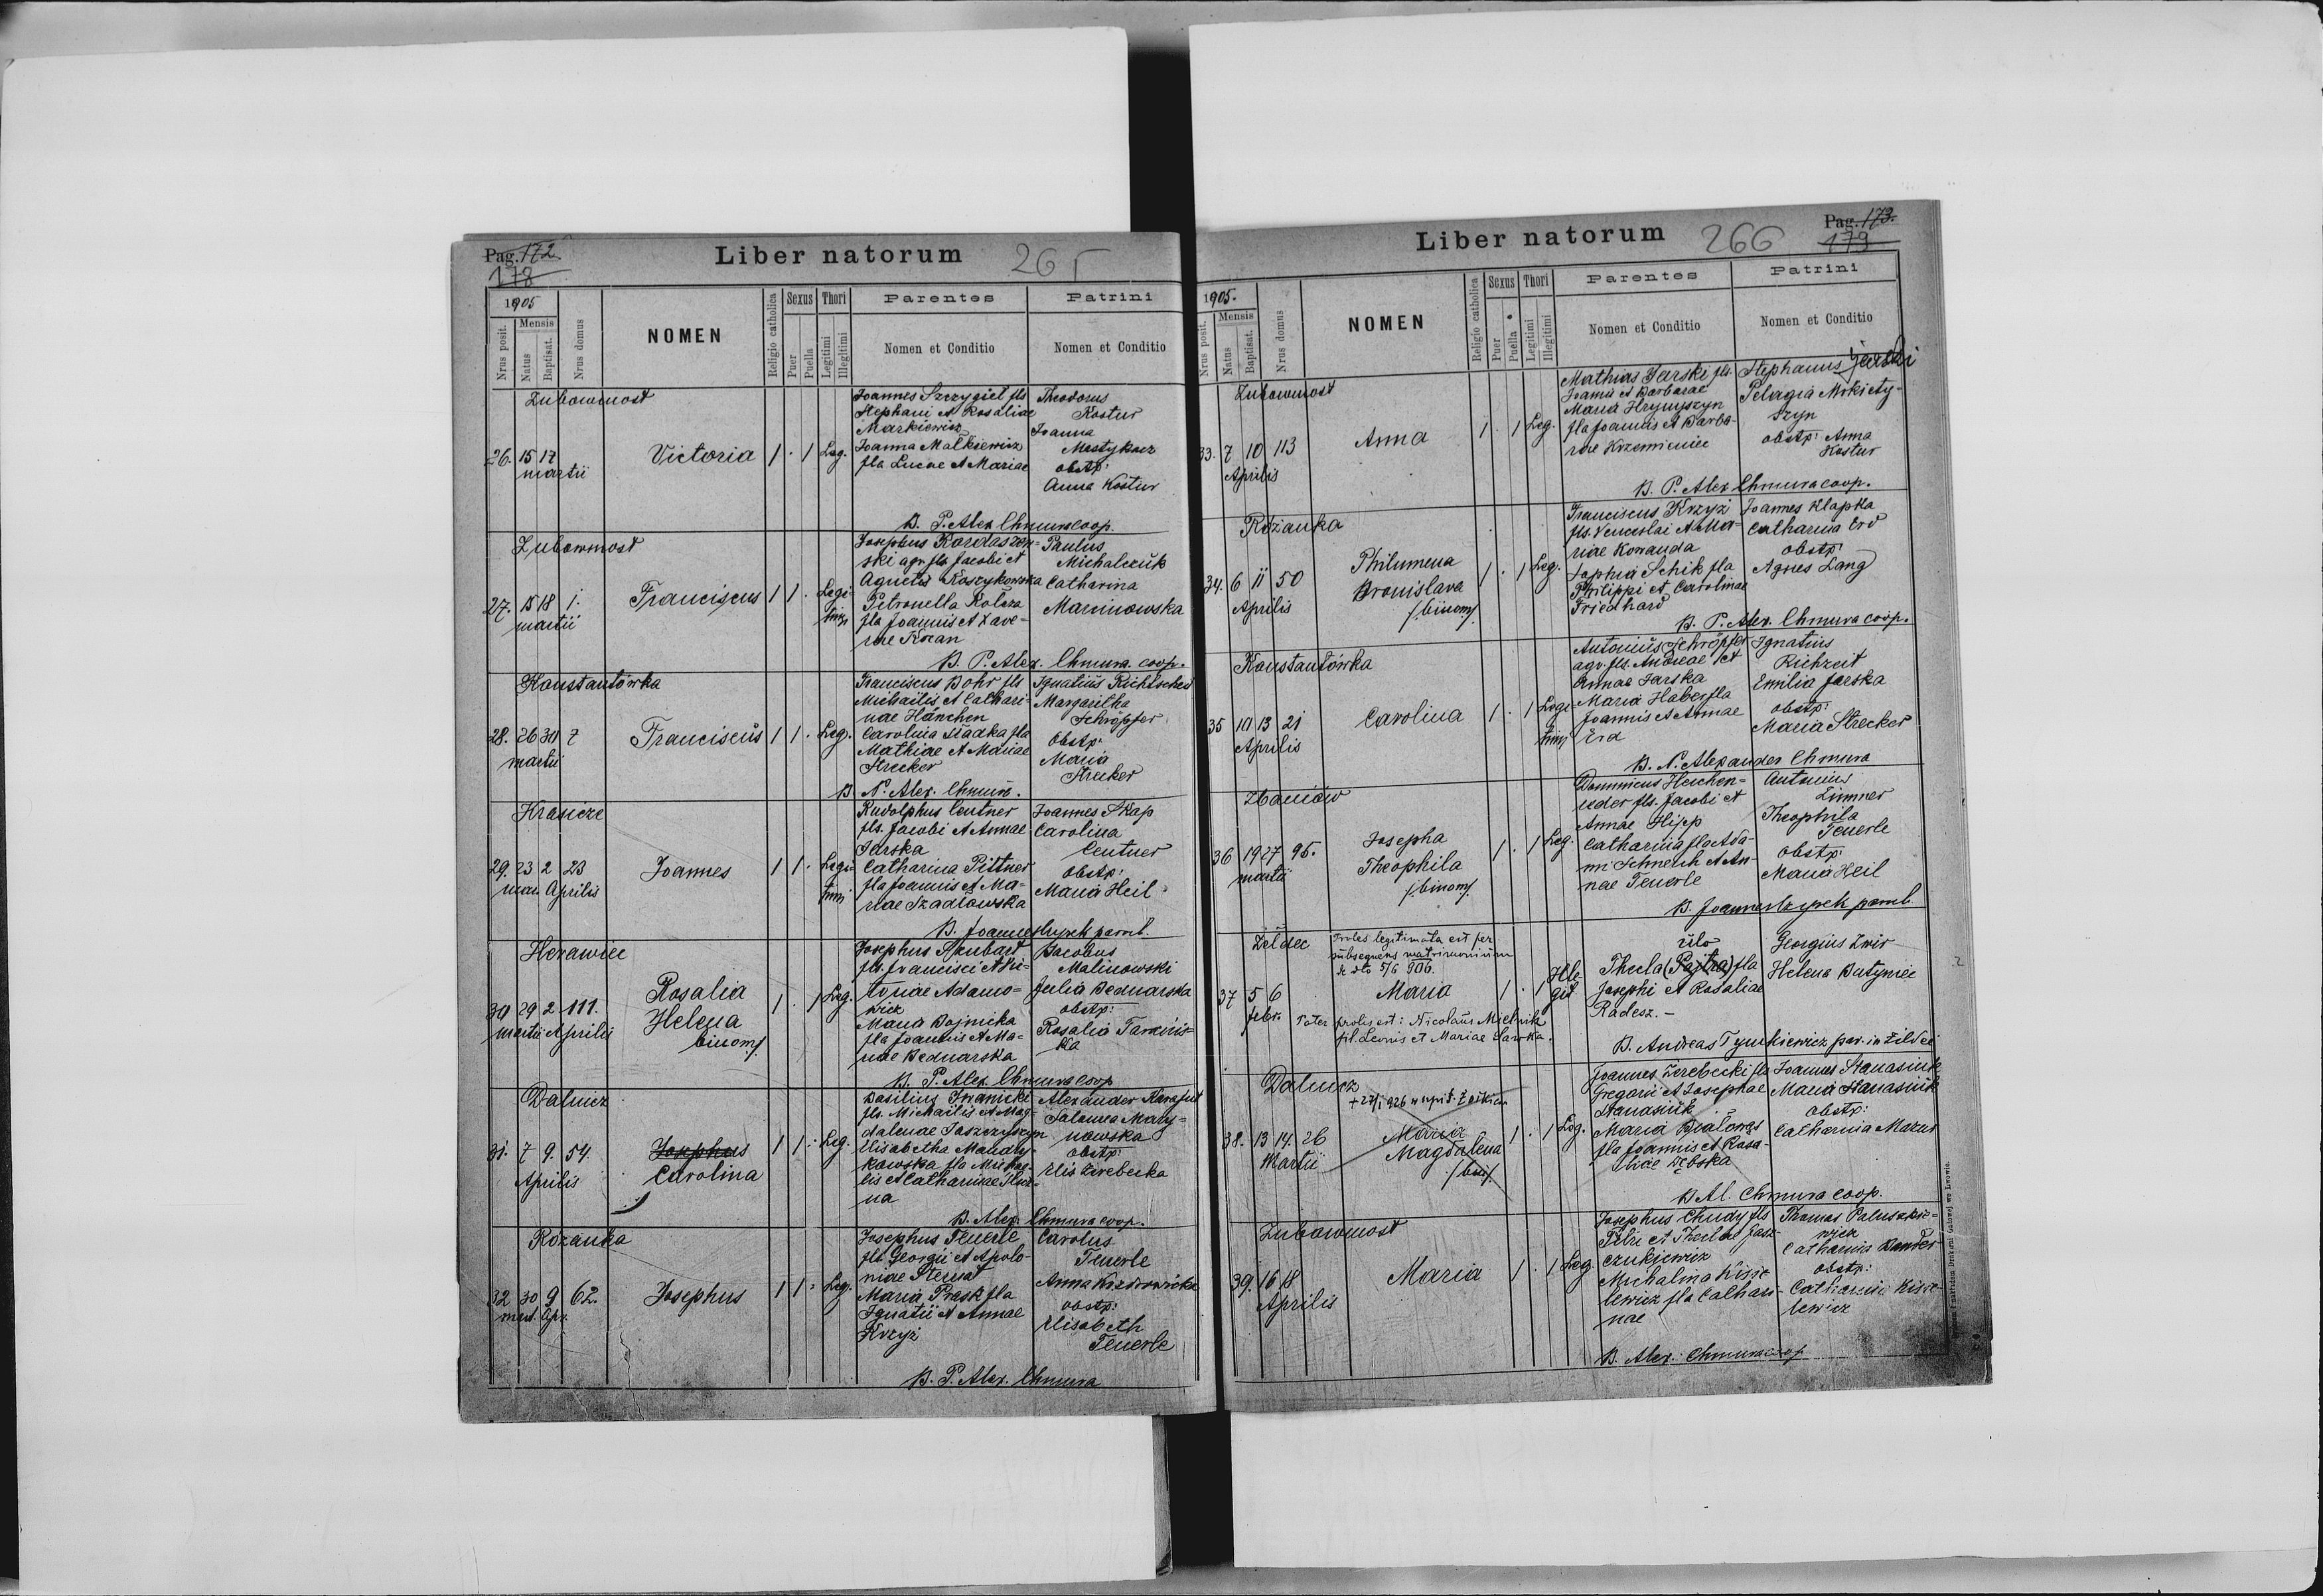 Pag. 172
178
Liber natorum 265
1905
Nrus posit.
Mensis
Natus
Baptisat.
Nrus domus
NOMEN
Religio catholica
Sexus
Puer
Puella
Thori
Legitimi
Illegitimi
Parentes
Nomen et Conditio
Patrini
Nomen et Conditio
Zubowmost
26. 15 17
martii
Victoria 1 . 1 Leg.
Joannes Szczygieł fls
Stephani et Rosaliae
Markiewicz
Joanna Malkiewicz
fla Lucae et Mariae
Theodorus
Kostur
Joanna
obstp:
Anna Kostur
B. P. Alex Chmura coop.
Zubowmost
27. 15 18 1.
martii
Franciscus 1 1 . Legi-
timi
Josephus Kordaszew-
ski agr. fls Jacobi et
Agnetis Koszykowska
Petronella
fla Joannis et Xave-
riae
Paulus
Michalczuk
Catharina
Marcinowska
B. P. Alex. Chmura. coop.
Konstantówka
28. 26 30 7
martii
Franciscus 1 1 . Leg.
Franciscus Bohr fls
Michaëlis et Cathari-
nae Hänchen
Carolina Siadka fla
Mathiae et Mariae
Strecker
Ignatius
Margaritha
Schröpfer
Obstp:
Maria
Strecker
B N. Alex. Chmura.
Krasicze
29. 23 2 23
mart. Aprilis
Joannes 1 1 . Legi-
timi
Rudolphus Centner
fls. Jacobi et Annae
Jarska
Catharina Pittner
fla Joannis et Ma-
riae Szadkowska
Joannes Skap
Carolina
Centner
obstp:
Maria Heil
B. Joannes
Herawiec
30 29 2 111.
martii Aprilis
Rosalia
Helena
binom/.
1 . 1 Leg.
Josephus
fls. Francisci et Vic-
toriae Adamo-
wicz
Maria Bojnicka
fla Joannis et Ma-
riae Bednarska
Jacobus
Malinowski
Julia Bednarska
obstp:
Rosalia
B. P. Alex. Chmura coop
Dalnicz
31. 7 9. 54.
Aprilis
Josephus
Carolina
1 1 . Leg.
Basilius Iwanicki
fls. Michaëlis et Mag-
dalenae Jaszczyszyn
Elisabetha
fla Michae-
lis et Catharinae
Alexander
Salomea Mary-
nowska
obstp:
Elis Zerebecka
B. Alex. Chmura coop.
Rozanka
32 30 9 62.
mart. Apr.
Josephus 1 1 . Leg.
Josephus Teuerle
fls Georgii et Apolo-
niae Sternat
Maria Prask fla
Ignatii et Annae
Krzyż
Carolus
Teuerle
Anna
obstp:
Elisabeth
Teuerle
B. P. Alex. Chmura
Liber natorum 266
Pag. 173.
179
1905.
Nrus posit.
Mensis
Natus
Baptisat.
Nrus domus
NOMEN
Religio catholica
Sexus
Puer
Puella
Thori
Legitimi
Illegitimi
Parentes
Nomen et Conditio
Patrini
Nomen et Conditio
Zubowmost
33. 7 10 113
Aprilis
Anna 1 . 1 Leg.
Mathias Jarski fls.
Joannis et Barbarae
Maria Hrynyszyn
fla Joannis et Barba-
rae Krzemieniec
Stephanus Jarski
Pelagia Mokiety-
szyn
obstp: Anna
Kostur
B. P. Alex Chmura coop.
Rozanka
34. 6 11 50
Aprilis
Philumena
Bronislava
/binom/.
1 . 1 Leg.
Franciscus Krzyż
fls. Venceslai et Ma-
riae Kowanda
Sophia Schik fla
Philippi et Carolinae
Friedhard
Joannes Klapka
Catharina Erd
obstp:
Agnes Lang
B. P. Alex. Chmura coop.
Konstantówka
35 10 13 21
Aprilis
Carolina 1 . 1 Legi-
timi
Antonius Schröpfer
agr. fls. Andreae et
Annae Jarska
Maria Haber fla
Joannis et Annae
Erd
Ignatius
Emilia Jarska
obstp:
Maria Strecker
B. N. Alexander Chmura
Zbaniów
36 19 27 95.
martii
Josepha
Theophila
/binom/.
1 . 1 Leg.
Dominicus
fls. Jacobi et
Annae Hipp
Catharina fla Ada-
mi Schneich et An-
nae Teuerle
Antonius
Zimmer
Theophila
Teuerle
obstp:
Maria Heil
B. Joannes
Zeldec
Proles legitimata est per
subsequens matrimonium
de dto 5/6 906.
37 5 6
febr.
Maria 1 . 1 Ille-
git.
Pater prolis est: Nicolaus Mielnik
fil. Leonis et Mariae Sawka.
Thecla (Pajtra) fla
Josephi et Rosaliae
Radesz. -
Georgius Zwir
Helena Batyniec
B. Andreas Tynkiewicz par. in Zeldec
Dalnicz
38. 13 14. 26
Martii
Maria
Magdalena
/bin/.
1 . 1 Leg.
Joannes Zerebecki fls
Gregorii et Josephae
Stanasiuk
Maria Białowąs
fla Joannis et Rosa-
liae Dębska
Joannes Stanasiuk
Maria Stanasiuk
obstp:
Catharina Mazur
B Al. Chmura coop.
Zubowmost
39. 16 18
Aprilis
Maria 1 . 1 Leg.
Josephus Chudy fls
Petri et Theclae Jasz-
czukiewicz
Michalina
lewicz fla Cathari-
nae
Thomas Paluszkie-
wicz
Catharina
obstp:
Catharina
lewicz
B. Alex. Chmura coop